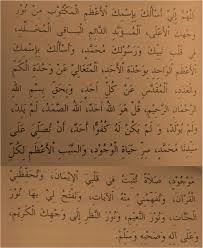 اَللّٰهُمَّ إِنِّي أَسْأَلُكَ بِاسْمِكَ الْأَعْظَمِ الْمَكْتُوبِ مِنْ نُورِ
وَجْهِكَ الْأَعْلَى، الْمُؤَبَّدِ الدَّائِمِ الْبَاقِي الْمُخَلَّدِ،
فِي قَلْبِ نَبِيِّكَ وَرَسُولِكَ مُحَمَّدٍ، وَأَسْأَلُكَ بِاسْمِكَ
الْأَعْظَمِ الْوَاحِدِ بِوَحْدَةِ الْأَحَدِ، الْمُتَعَالِي عَنْ وَحْدَةِ الْكَمِّ
وَالْعَدَدِ، الْمُقَدَّسِ عَنْ كُلِّ أَحَدٍ، وَبِحَقِّ بِسْمِ اللهِ
الرَّحْمٰنِ الرَّحِيمِ، قُلْ هُوَ اللهُ أَحَدٌ، اللهُ الصَّمَدُ، لَمْ يَلِدْ،
وَلَمْ يُولَدْ، وَلَمْ يَكُنْ لَهُ كُفُوًا أَحَدٌ، أَنْ تُصَلِّيَ عَلَى
سَيِّدِنَا مُحَمَّدٍ، سِرِّ حَيَاةِ الْوُجُودِ، وَالسَّبَبِ الْأَعْظَمِ لِكُلِّ
مَوْجُودٍ، صَلَاةً تُثَبِّتُ فِي قَلْبِي الْإِيمَانَ، وَتُحَفِّظُنِي
الْقُرْآنَ، وَتُفَهِّمُنِي مِنْهُ الْآيَاتِ، وَتَفْتَحُ لِي بِهَا نُورَ
الْجَنَّاتِ، وَنُورَ النَّعِيمِ، وَنُورَ النَّظَرِ إِلَى وَجْهِكَ الْكَرِيمِ،
وَعَلَى آلِهِ وَصَحْبِهِ وَسَلِّمْ.